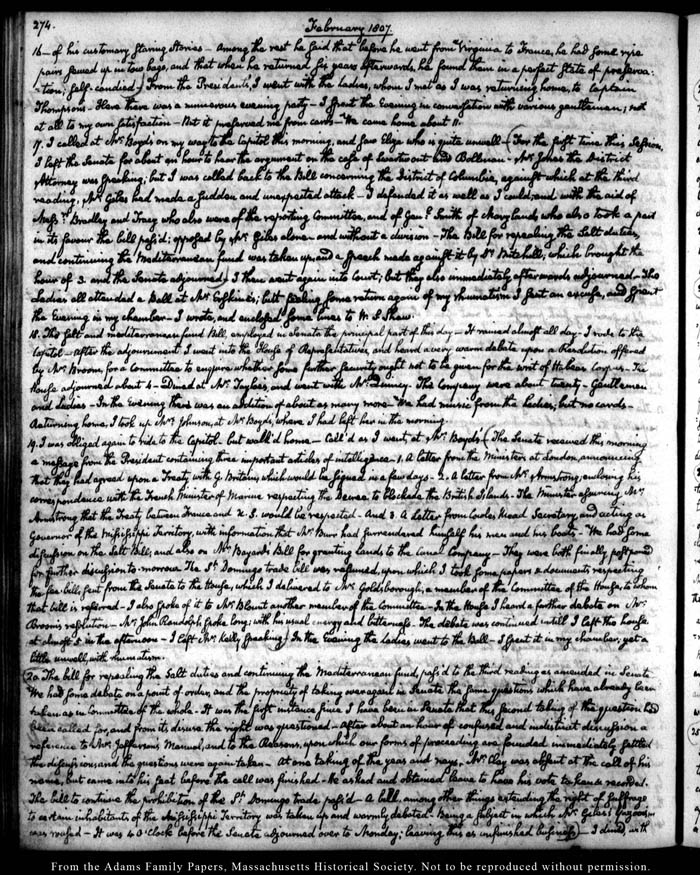 274.
February 1807.
16 — of his customary staring Stories — Among the rest he said that before he went from Virginia to France, he had some ripe
pears sewed up in tow bags, and that when he returned six years afterwards, he found them in a perfect state of preserva-
-tion; self-candied) From the President's, I went with the Ladies, whom I met as I was returning home, to Captain
Thompson's — Here there was a numerous evening party — I spent the Evening in conversation with various gentlemen; not
at all to my own satisfaction — But it preserved me from cards — We came home about 11.
17. I called at Mr Boyds on my way to the Capitol this morning, and saw Eliza who is quite unwell — (For the first time this Session,
I left the Senate for about an hour to hear the argument on the case of Swartwout and Bollman — Mr Jones the District
Attorney was speaking; but I was called back to the Bill concerning the District of Columbia, against which at the third
reading, Mr Giles had made a sudden and unexpected attack — I defended it as well as I could, and with the aid of
Messrs Bradley and Tracy who also were of the reporting Committee, and of Genl Smith of Maryland, who also took a part
in its favour the bill pass'd; opposed by Mr Giles alone and without a division — The Bill for repealing the Salt duties,
and continuing the Mediterranean fund was taken up, and a speech made against it by Dr Mitchell, which brought the
hour of 3. and the Senate adjourned) I then went again into Court; but they also immediately afterwards adjourned — The
Ladies all attended a Ball at Mrs but feeling some return again of my rhumatism I sent an excuse, and spent
the Evening in my chamber — I wrote, and enclosed some lines to W. S. Shaw.
18. The Salt and mediterranean fund Bill, employed in Senate the principal part of this day — It rained almost all day — I rode to the
Capitol — After the adjournment I went into the House of Representatives, and heard a very warm debate upon a Resolution offered
by Mr Broom, for a Committee to enquire whether some further security ought not to be given for the writ of Habeas Corpus — The
House adjourned about 4 — Dined at Mr Tayloe's, and went with Mr Quincy. The Company were about twenty — Gentlemen
and Ladies — In the evening there was an addition of about as many more — We had music from the Ladies; but no cards —
Returning home, I took up Mrs Johnson, at Mr Boyd's, where I had left her in the morning.
19. I was obliged again to ride to the Capitol, but walk'd home — Call'd as I went, at Mr Boyd's (The Senate received this morning
a message from the President containing three important articles of intelligence — 1. A letter from the Ministers at London, announcing
that they had agreed upon a Treaty with G. Britain, which would be signed in a few days — 2. A letter from Mr Armstrong, enclosing his
correspondence with the French Minister of Marine respecting the Decree, to blockade the British Islands — The Minister assuring Mr
Armstrong that the Treaty between France and U. S. would be respected — And 3. A letter from Cowles Mead Secretary, and acting as
Governor of the Mississippi Territory, with information that Mr Burr had surrendered himself his men and his boats — We had some
discussion on the Salt Bill; and also on Mr Bayard's Bill for granting lands to the Canal Company — They were both finally postponed
for further discussion to-morrow. The St Domingo trade bill was resumed, upon which I took some papers & documents respecting
the bill, sent from the Senate to the House, which I delivered to Mr Goldsborough, a member of the Committee of the House, to whom
that bill is referred — I also spoke of it to Mr Blount another member of the Committee — In the House I heard a further debate on Mr
Broom's resolution — Mr John Randolph spoke long; with his usual energy and bitterness. The debate was continued until I left the house
at almost 5 in the afternoon — I left Mr Kelly, speaking) In the Evening the Ladies went to the Ball — I spent it in my chamber, yet a
little unwell, with rhumatism.
(20. The bill for repealing the Salt duties and continuing the Mediterranean fund, pass'd to the third reading as amended in Senate
We had some debate on a point of order, and the propriety of taking over again in Senate the same questions which have already been
taken as in Committee of the whole — It was the first instance since I have been in Senate that this second taking of the question had
been called for, and from its disuse the right was questioned — After about an hour of confused and indistinct discussion a
reference to Mr Jefferson's Manual, and to the Reasons, upon which our forms of proceeding are founded immediately settled
the discussion and the questions were again taken — At one taking of the yeas and nays, Mr Clay was absent at the call of his
name, but came into his seat before the call was finished — He asked and obtained leave to have his vote taken & recorded.
The bill to continue the prohibition of the St Domingo trade pass'd — A bill, among other things extending the right of suffrage
to certain inhabitants of the Mississippi Territory was taken up and warmly debated — Being a subject in which Mr Giles's
was roused — It was 4 O'Clock before the Senate adjourned over to Monday; leaving this as unfinished business) — I dined with
From the Adams Family Papers, Massachusetts Historical Society. Not to be reproduced without permission.